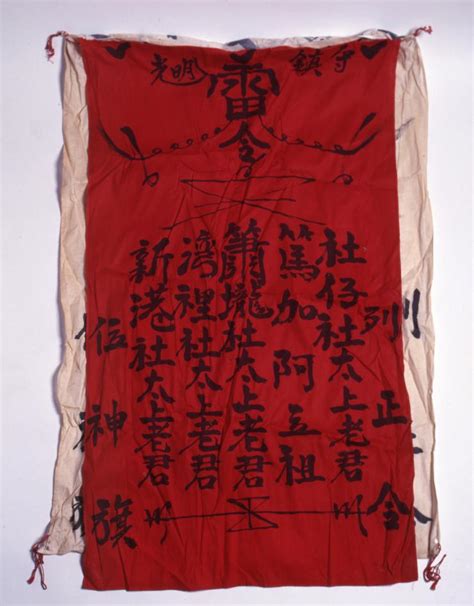 鎮守
雷令
光明
列正令
社仔社太上老君
篤加阿立祖
蕭壠社太上老君
灣裡社太上老君
新港社太上老君
位神旗